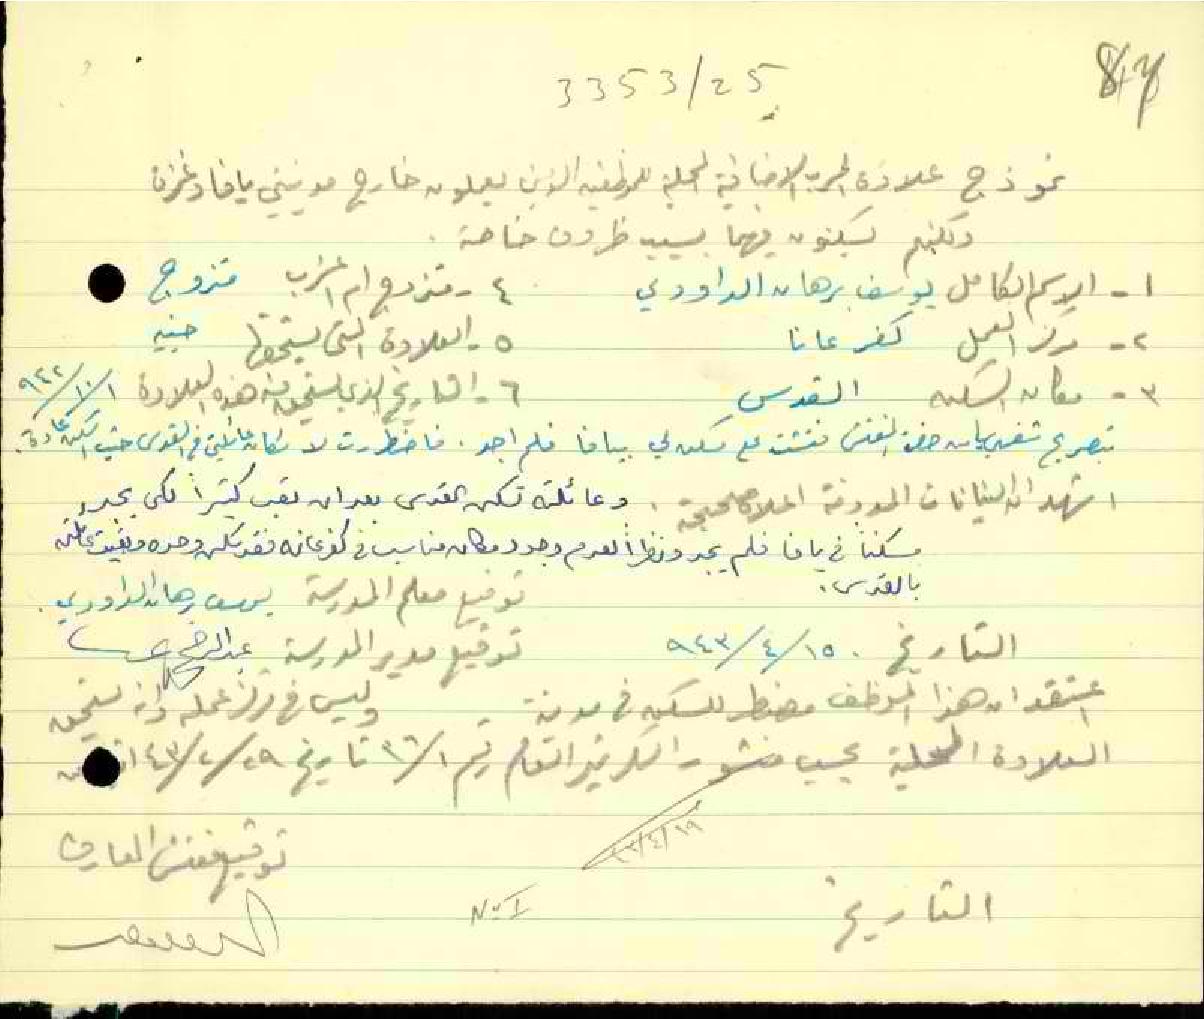 847
3353/25
نموذج علاوة الحرب الاضافية المحلية للموظفين الذين يعملون خارج مدينتي يافا وغزة
ولكنهم يسكنون فيهما بسبب ظروف خاصة .
١- الاسم الكامل يوسف برهان الداودي ٤- متزوج ام اعزب متزوج
٢- مركز العمل كفر عانا ٥- العلاوة التي يستحقها جنيه
٣- مكان السكن القدس ٦- التاريخ الذي يستحق فيه هذه العلاوة ١/١٠/٩٤٢
فتشت على سكن لي بيافا فلم اجد . فاضطررت لا في القدس حيث اسكن عادة .
اشهد ان البيانات المدونة اعلاه صحيحة . وعائلته تسكن القدس بعد ان تعب كثيراً لكي يجد
مسكناً في يافا فلم يجد ونظراً لعدم وجود مكان مناسب في كفرعانه فقد سكن وحده وبقيت عائلته
بالقدس .
توقيع معلم المدرسة يوسف برهان الداودي .
التاريخ ١٥/٤/٩٤٣ توقيع مدير المدرسة
اعتقد ان هذا الموظف مضطر للسكن في مدينة وليس في مركز عمله وانه يستحق
العلاوة المحلية بحسب منشور السكرتير العام رقم ٣٦/١ تاريخ ٢٩/٢/٤٣
١٩/٤/٤٣
توقيع مفتش المعارف
التاريخ